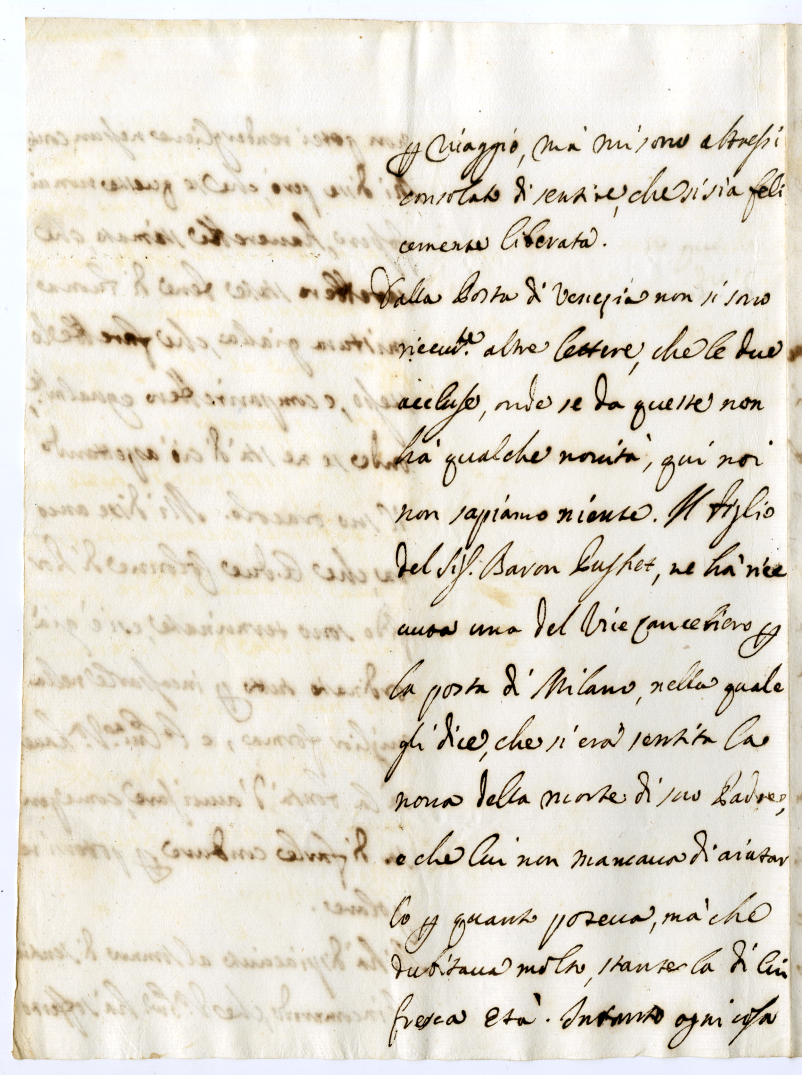 p viaggio, mà mi sono altressi
consolato di sentire, che si sia feli
cemente liberata.
Dalla Posta di Venezia non si sono
riceuute altre lettere, che le due
accluse, onde se da queste non
hà qualche nouità, qui noi
non sapiamo niente. Il figlio
del Sig. Baron, ne hà rice
uuta una del Vice Cancelliero p
la posta di Milano, nella quale
gli dice, che si erà sentita la
noua della morte di suo Padre,
e che lui non mancaua di aiutar
lo p quanto poteua, mà che
dubitaua molto, stante la di lui
fresca età. Intanto ogni cosa